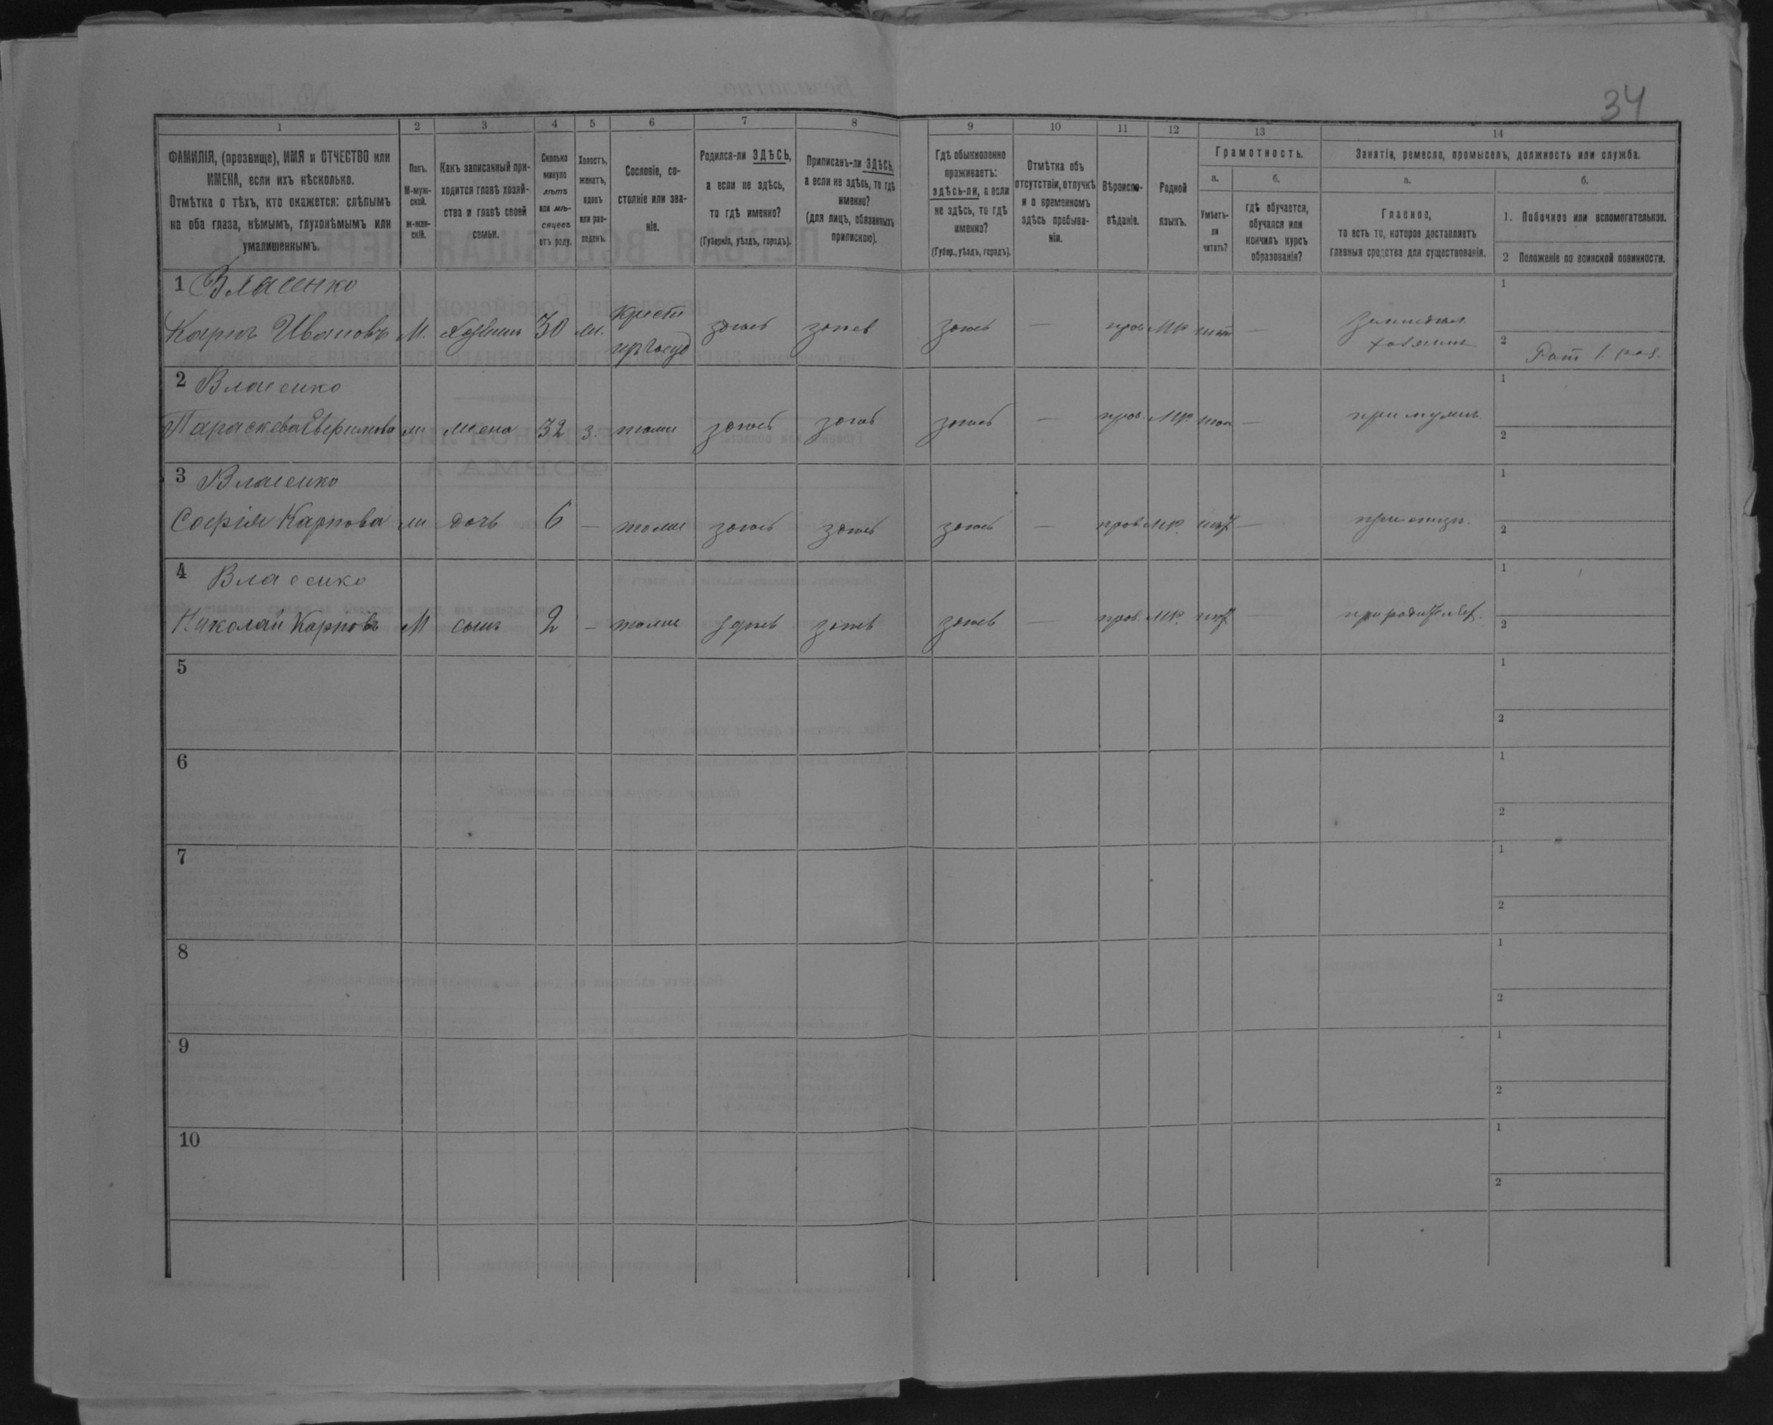 34
1
2
3
4
5
6
7
8
9
10
11
12
13
14
ФАМИЛІЯ, (прозвище), ИМЯ и ОТЧЕСТВО или
ИМЕНА, если ихъ нѣсколько.
Отмѣтка о тѣхъ, кто окажется: слѣпымъ
на оба глаза, нѣмымъ, глухонѣмымъ или
умалишеннымъ.
Полъ.
М-муж-
ской.
ж-жен-
скій.
Какъ записанный при-
ходится главѣ хозяй-
ства и главѣ своей
семьи.
Сколько
минуло
лѣтъ
или мѣ-
сяцевъ
отъ роду.
Холостъ,
женатъ,
вдовъ
или раз-
веденъ.
Сословіе, со-
стояніе или зва-
ніе.
Родился-ли ЗДѢСЬ,
а если не здѣсь,
то гдѣ именно?
(Губернія, уѣздъ, городъ).
Приписанъ-ли ЗДѢСЬ,
а если не здѣсь, то гдѣ
именно?
(для лицъ, обязанныхъ
припискою).
Гдѣ обыкновенно
проживаетъ:
здѣсь-ли, а если
не здѣсь, то гдѣ
именно?
(Губер., уѣздъ, городъ).
Отмѣтка объ
отсутствіи, отлучкѣ
и о временномъ
здѣсь пребыва-
ніи.
Вѣроиспо-
вѣданіе.
Родной
языкъ.
Грамотность.
а.
Умѣетъ-
ли
читать?
б.
Гдѣ обучается,
обучался или
кончилъ курсъ
образованія?
Занятіе, ремесло, промыселъ, должность или служба.
а.
Главное,
то есть то, которое доставляетъ
главныя средства для существованія.
б.
1. Побочное или вспомогательное.
2 Положеніе по воинской повинности.
1 Власенко
Карпъ Ивановъ М. хозяинъ 30 ж. крест. здѣсь здѣсь здѣсь — прав. мр. — 
1
2 Рат. 1 раз.
2 Власенко
Параскева Ефимова ж жена 32 з. тоже здѣсь здѣсь здѣсь — прав. мр. — при мужѣ
1
2
3 Власенко
Софія Карпова ж дочь 6 — тоже здѣсь здѣсь здѣсь — прав. мр. нѣт — при отцѣ.
1
2
4 Власенко
Николай Карповъ М сынъ 2 — тоже здѣсь здѣсь здѣсь — прав. мр. нѣт —
1
2
5
1
2
6
1
2
7
1
2
8
1
2
9
1
2
10
1
2